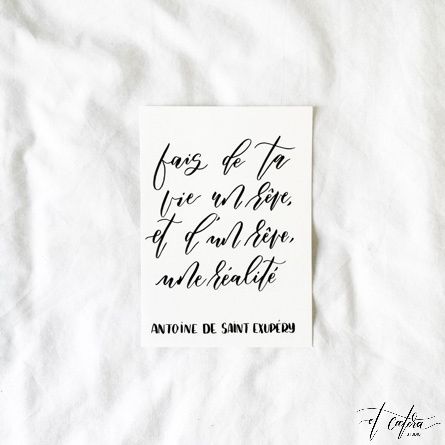 fais de ta
vie un rêve,
et d'un rêve,
une réalité
ANTOINE DE SAINT EXUPÉRY
et cætera
STUDIO